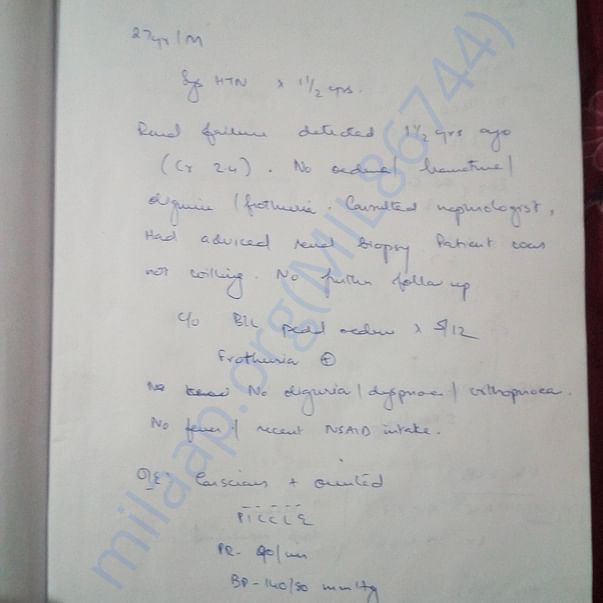 27yr/M
Sys HTN x 1 1/2 yrs.
Renal failure detected 1 1/2 yrs ago
(Cr 2.4). No oedema/ hematuria/
oliguria /frothuria. Consulted nephrologist,
Had adviced renal biopsy Patient was
not willing. No further follow up
c/o B/L pedal oedema x 5/12
Frothuria ⊕
No oliguria/dyspnoea/orthopnoea.
No fever/ recent NSAID intake.
O/E: Conscious + oriented
PICCLE
PR- 90/min
BP-140/80 mmHg
milaap.org(MIL86744)